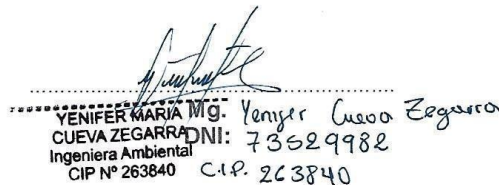 YENIFER MARIA
CUEVA ZEGARRA
Ingeniera Ambiental
CIP Nº 263840
Mg. Yenifer Cueva Zegarra
DNI: 73529982
C.I.P. 263840